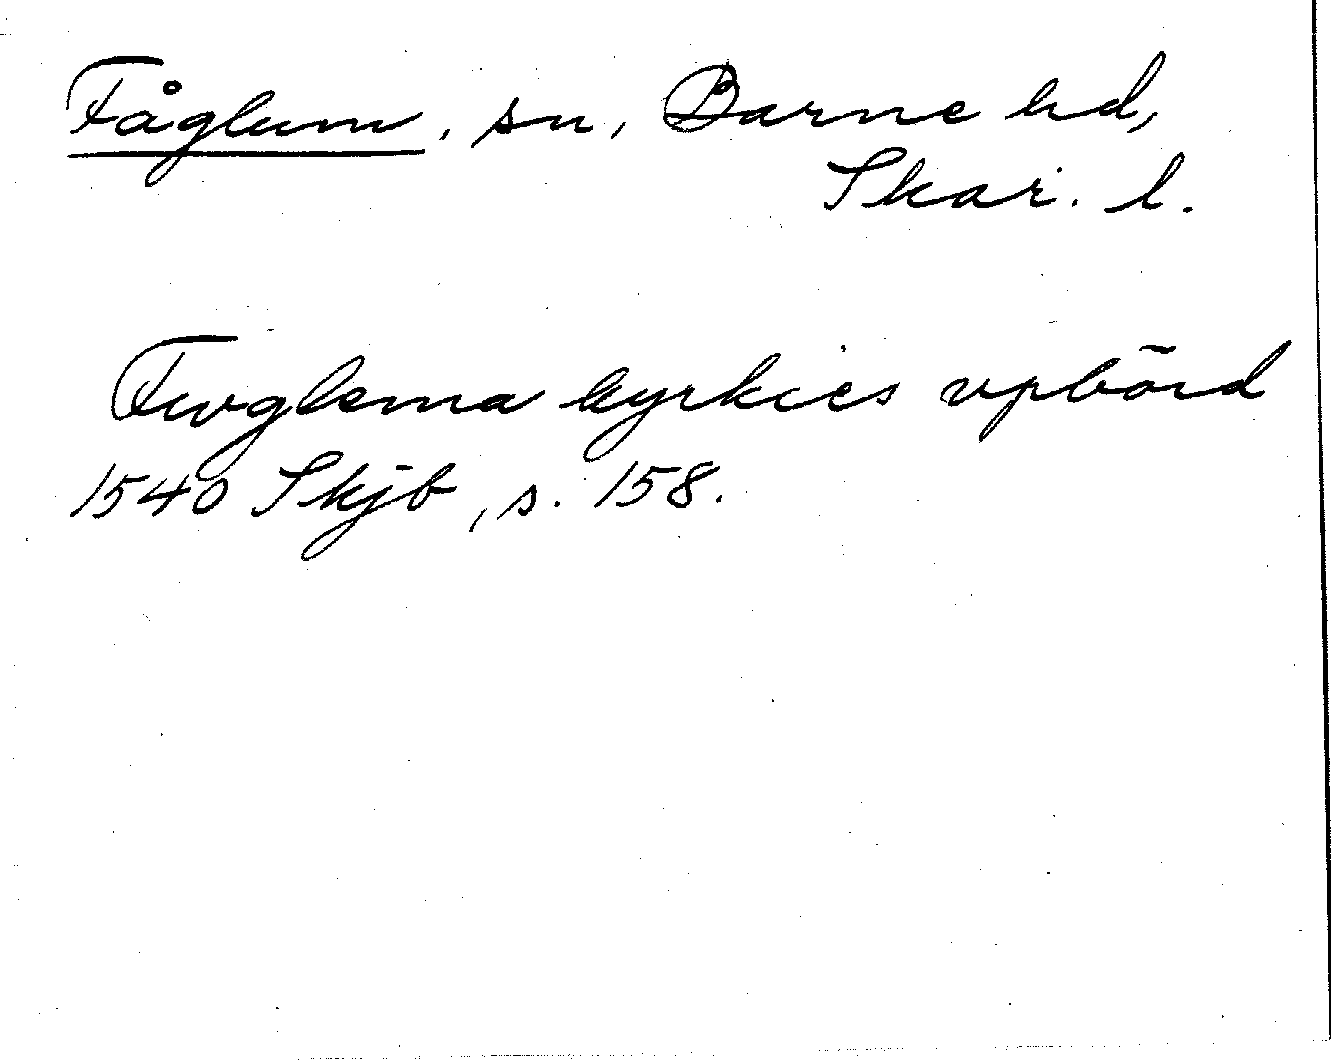 Fåglum, sn, Barne hd,
Skar. l.
Fwglema kyrkies vpbörd
1540 Skjb, s. 158.